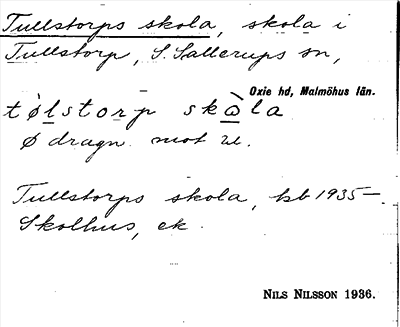 Tullstorps skola, skola i
Tullstorp, S. Sallerups sn,
Oxie hd, Malmöhus län.
tølstorp skɷ̀la
ø dragn. mot u.
Tullstorps skola, hb 1935—.
Skolhus, ek.
NILS NILSSON 1936.